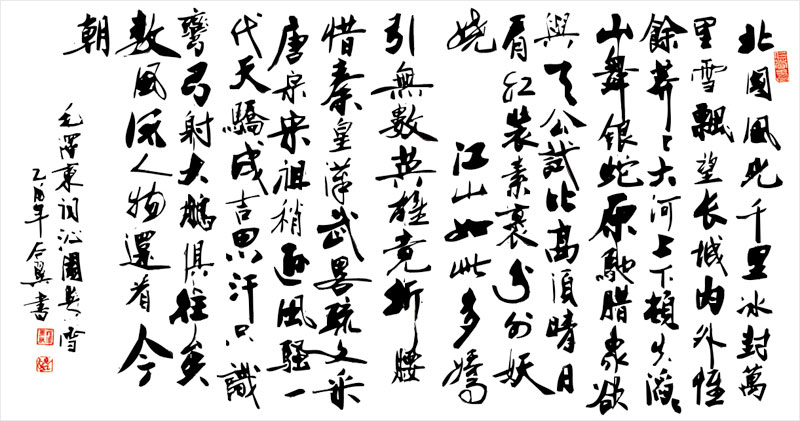 北國風光千里冰封萬
里雪飄望长城内外惟
餘莽々大河上下頓失滔々
山舞銀蛇原馳腊象欲
與天公試比高須晴日
看红裝素裹分外妖
嬈 江山如此多嬌
引無數英雄竟折腰
惜秦皇漢武畧疏文采
唐宗宋祖稍逊風騷一
代天驕成吉思汗只識
彎弓射大鵰俱往矣
数風流人物還看今
朝
毛澤東詞沁園春雪
乙酉年合翼書